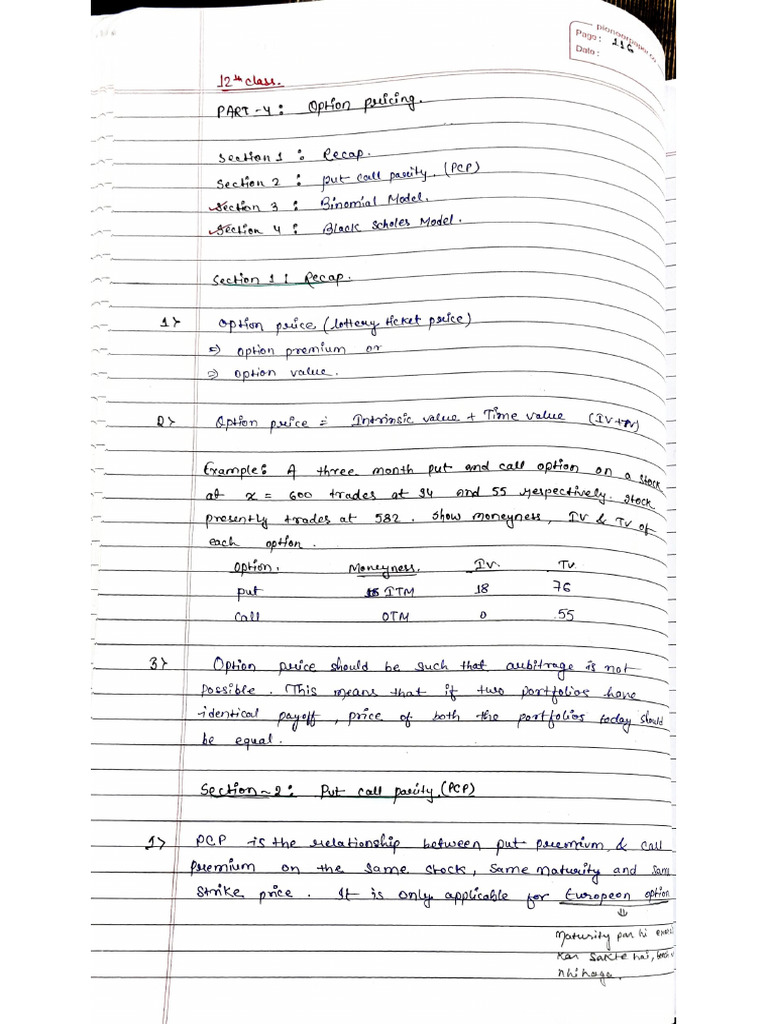 pionoarpaper.co
Page: 116
Date:
12th class.
PART-4: Option pricing.
Section 1 : Recap.
Section 2 : put call parity. (PCP)
Section 3 : Binomial Model.
Section 4 : Black Scholes Model.
Section 1 : Recap.
1> Option price (lottery ticket price)
⇒ option premium or
⇒ option value.
2> Option price = Intrinsic value + Time value (IV+TV)
Example: A three month put and call option on a stock
at x = 600 trades at 94 and 55 respectively. Stock
presently trades at 582. Show moneyness, IV & TV of
each option.
Option. Moneyness. IV. TV.
put ITM 18 76
Call OTM 0 55
3> Option price should be such that arbitrage is not
possible. This means that if two portfolios have
identical payoff, price of both the portfolios today should
be equal.
Section-2: Put call parity. (PCP)
1> PCP is the relationship between put premium & call
premium on the same stock, same maturity and same
strike price. It is only applicable for European option
⇓
Maturity par hi
kar sakte hai,
nhi hoga.